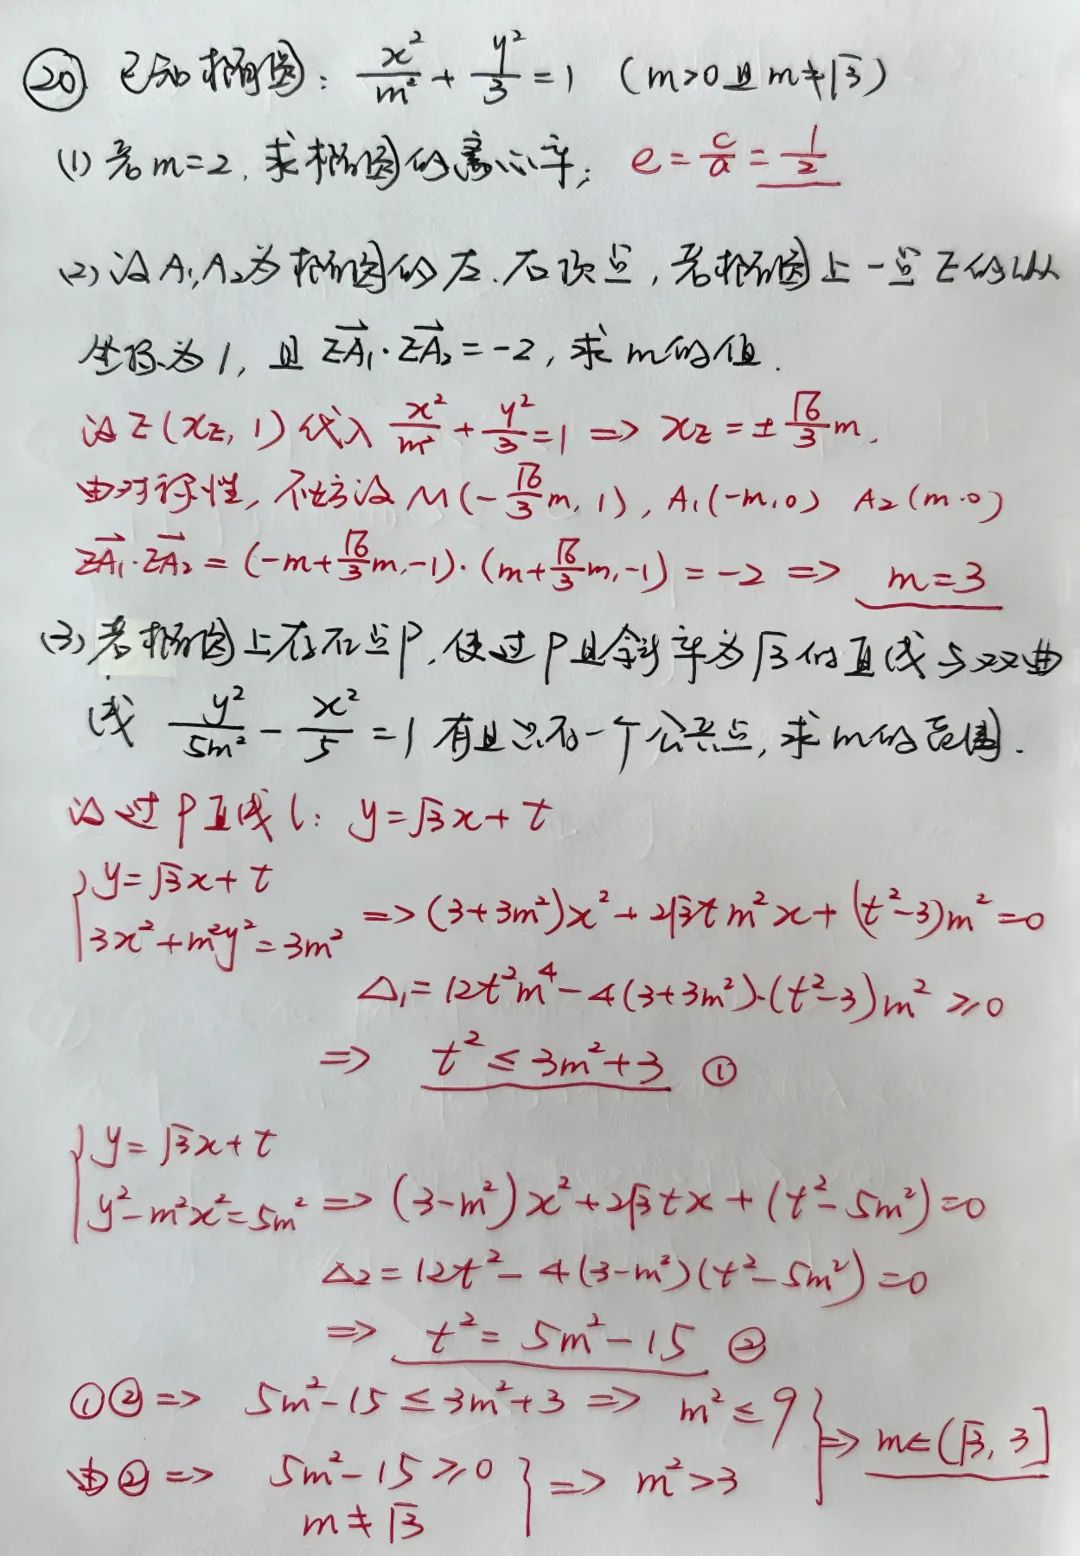 ⑳ 已知椭圆: x²/m² + y²/3 = 1 (m>0且m≠√3)
(1) 若m=2, 求椭圆的离心率; e = c/a = 1/2
(2) 设A₁,A₂为椭圆的左.右顶点, 若椭圆上一点Z的纵
坐标为1, 且 ZA₁·ZA₂ = -2, 求m的值.
设Z(xz, 1) 代入 x²/m² + y²/3 = 1 => xz = ±√6/3 m.
由对称性, 不妨设M(-√6/3 m, 1), A₁(-m,0) A₂(m.0)
ZA₁·ZA₂ = (-m+√6/3 m,-1)·(m+√6/3 m,-1) = -2 => m=3
(3) 若椭圆上存在点P, 使过P且斜率为√3的直线与双曲
线 y²/5m² - x²/5 = 1 有且只有一个公共点, 求m的范围.
设过P直线l: y=√3x+t
{ y=√3x+t
3x²+m²y²=3m² => (3+3m²)x²+2√3tm²x+(t²-3)m²=0
Δ₁=12t²m⁴-4(3+3m²)·(t²-3)m² ≥0
=> t² ≤ 3m²+3 ①
{ y=√3x+t
y²-m²x²=5m² => (3-m²)x²+2√3tx+(t²-5m²)=0
Δ₂=12t²-4(3-m²)(t²-5m²)=0
=> t²=5m²-15 ②
①②=> 5m²-15≤3m²+3 => m²≤9 } => m∈(√3, 3]
由②=> 5m²-15≥0 } => m²>3
m≠√3